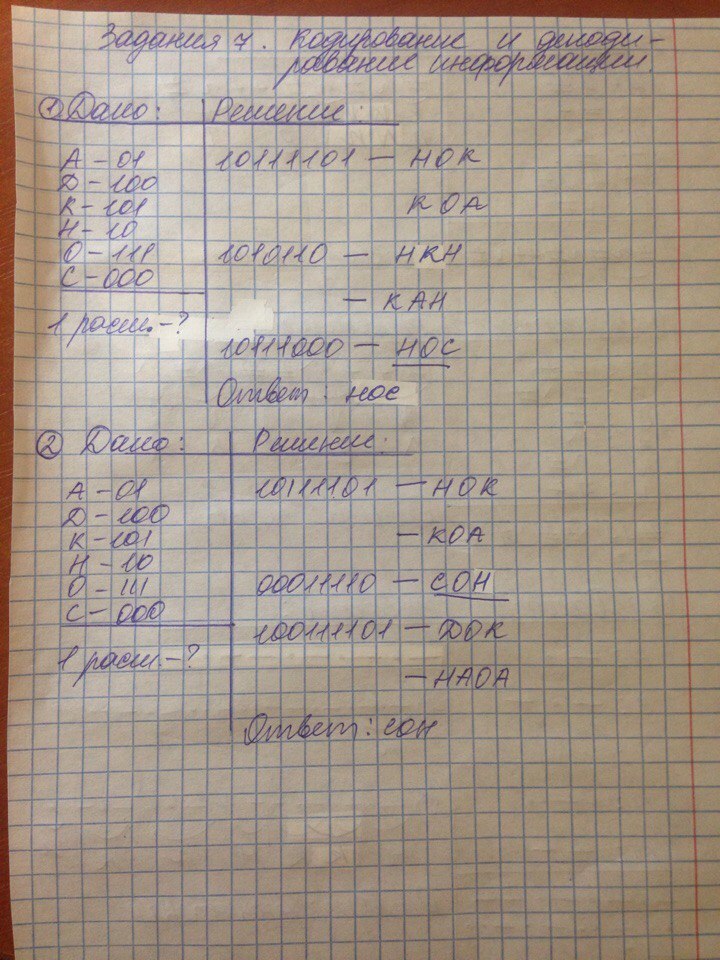 Задания 7. Кодирование и декоди-
рование информации.
① Дано: Решение:
А - 01 10111101 - НОК
Д - 100
К - 101 КОА
Н - 10
О - 111 1010110 - НКН
С - 000
- КАН
1 расш. - ?
10111000 - НОС
Ответ: НОС
② Дано: Решение:
А - 01 10111101 - НОК
Д - 100
К - 101 - КОА
Н - 10
О - 111 00011110 - СОН
С - 000
100111101 - ДОК
1 расш. - ?
- НАОА
Ответ: СОН